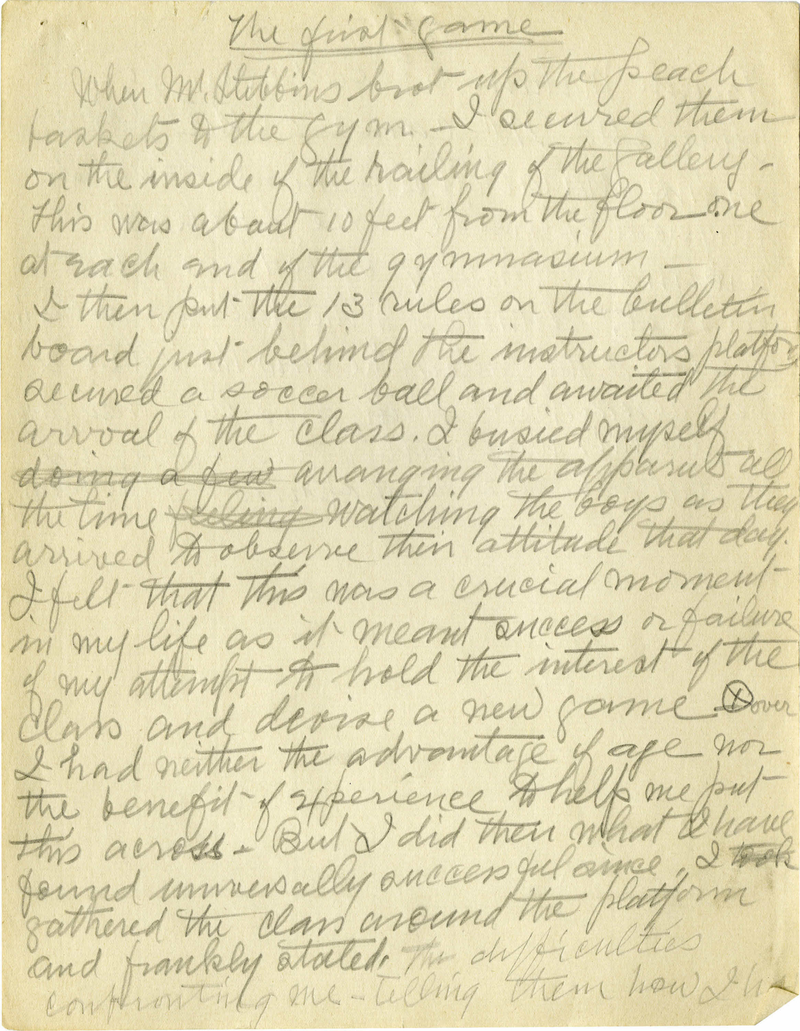 The first game
When Mr. Stebbins brot up the peach
baskets to the gym. - I secured them
on the inside of the railing of the gallery -
This was about 10 feet from the floor one
at each end of the gymnasium -
I then put the 13 rules on the bulletin
board just behind the instructors platform
secured a soccer ball and awaited the
arrval of the class. I busied myself
doing a few arranging the apparuts all
the time feeling watching the boys as they
arrived to observe their attitude that day.
I felt that this was a crucial moment
in my life as it meant success or failure
of my attempt to hold the interest of the
class and devise a new game. Ⓧ over
I had neither the advantage of age nor
the benefit of experience to help me put
this across - But I did then what I have
found universally successful since, I took
gathered the class around the platform
and frankly stated. The difficulties
confronting me - telling them how I